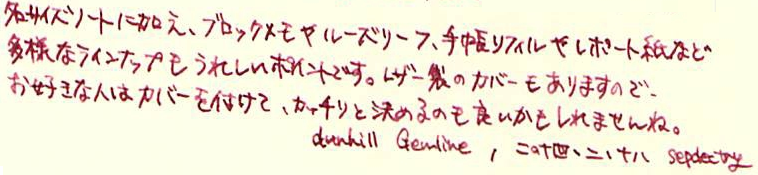 各サイズノートに加え、ブロックメモやルーズリーフ、手帳リフィルやレポート紙などの
多様なラインナップもうれしいポイントです。レザー製のカバーもありますので、
お好きな人はカバーを付けて、カッチリと決めるのも良いかもしれませんね。
dunhill Gemline , 二〇十四、二、十八